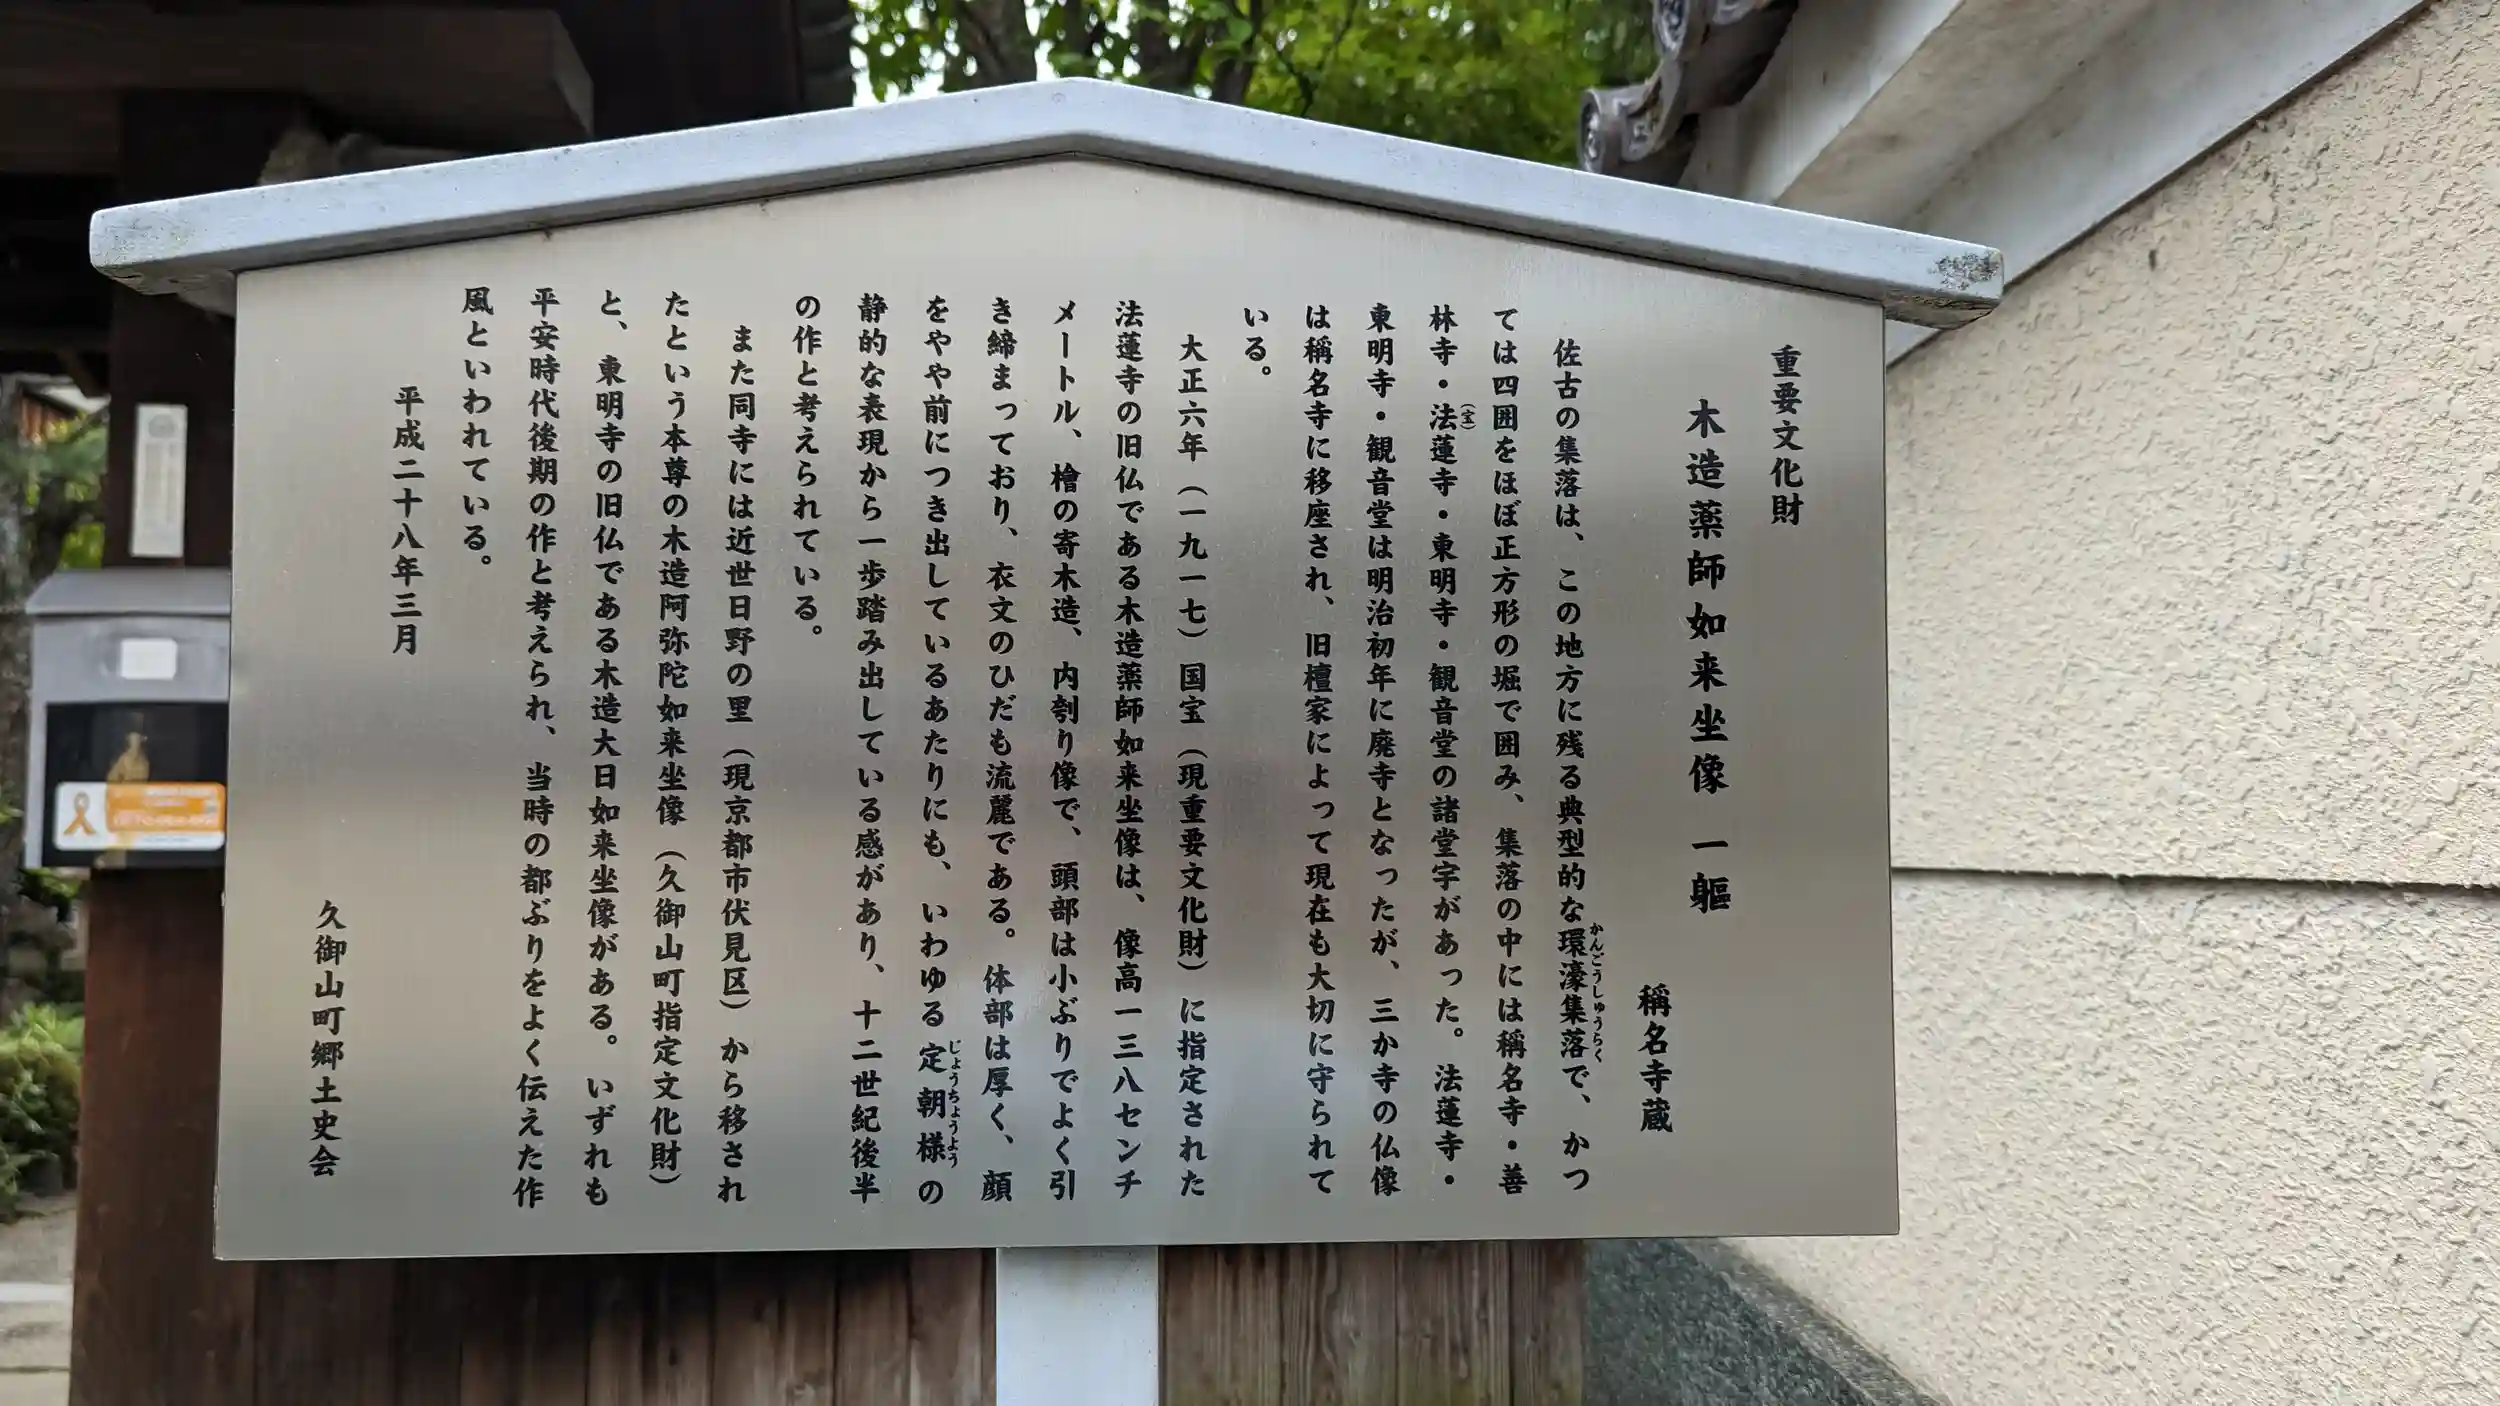 重要文化財
木造薬師如来坐像 一軀
稱名寺蔵
佐古の集落は、この地方に残る典型的な環濠集落で、かつ
かんごうしゅうらく
ては四囲をほぼ正方形の堀で囲み、集落の中には稱名寺・善
林寺・法蓮寺・東明寺・観音堂の諸堂宇があった。法蓮寺・
（宝）
東明寺・観音堂は明治初年に廃寺となったが、三か寺の仏像
は稱名寺に移座され、旧檀家によって現在も大切に守られて
いる。
大正六年（一九一七）国宝（現重要文化財）に指定された
法蓮寺の旧仏である木造薬師如来坐像は、像高一三八センチ
メートル、檜の寄木造、内刳り像で、頭部は小ぶりでよく引
き締まっており、衣文のひだも流麗である。体部は厚く、顔
をやや前につき出しているあたりにも、いわゆる定朝様の
じょうちょうよう
静的な表現から一歩踏み出している感があり、十二世紀後半
の作と考えられている。
また同寺には近世日野の里（現京都市伏見区）から移され
たという本尊の木造阿弥陀如来坐像（久御山町指定文化財）
と、東明寺の旧仏である木造大日如来坐像がある。いずれも
平安時代後期の作と考えられ、当時の都ぶりをよく伝えた作
風といわれている。
平成二十八年三月
久御山町郷土史会